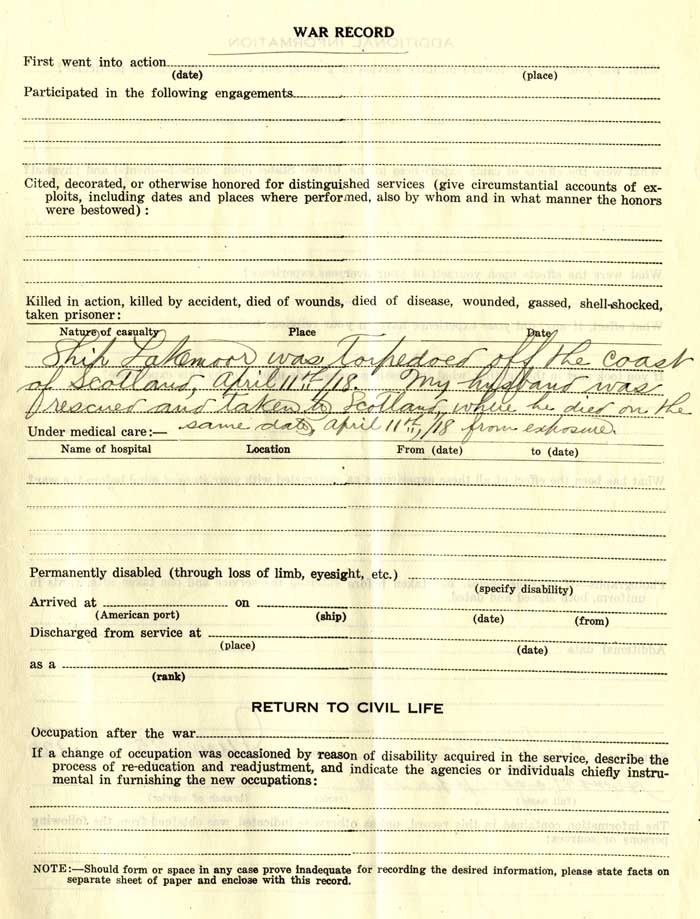 WAR RECORD
First went into action
(date) (place)
Participated in the following engagements
Cited, decorated, or otherwise honored for distinguished services (give circumstantial accounts of ex-
ploits, including dates and places where performed, also by whom and in what manner the honors
were bestowed) :
Killed in action, killed by accident, died of wounds, died of disease, wounded, gassed, shell-shocked,
taken prisoner:
Nature of casualty Place Date
Ship Lakemoor was torpedoed off the coast
of Scotland, April 11th/18. My husband was
rescued and taken to Scotland, where he died on the
same date, April 11th,/18 from exposure.
Under medical care:—
Name of hospital Location From (date) to (date)
Permanently disabled (through loss of limb, eyesight, etc.)
(specify disability)
Arrived at on
(American port) (ship) (date) (from)
Discharged from service at
(place) (date)
as a
(rank)
RETURN TO CIVIL LIFE
Occupation after the war
If a change of occupation was occasioned by reason of disability acquired in the service, describe the
process of re-education and readjustment, and indicate the agencies or individuals chiefly instru-
mental in furnishing the new occupations:
NOTE:—Should form or space in any case prove inadequate for recording the desired information, please state facts on
separate sheet of paper and enclose with this record.